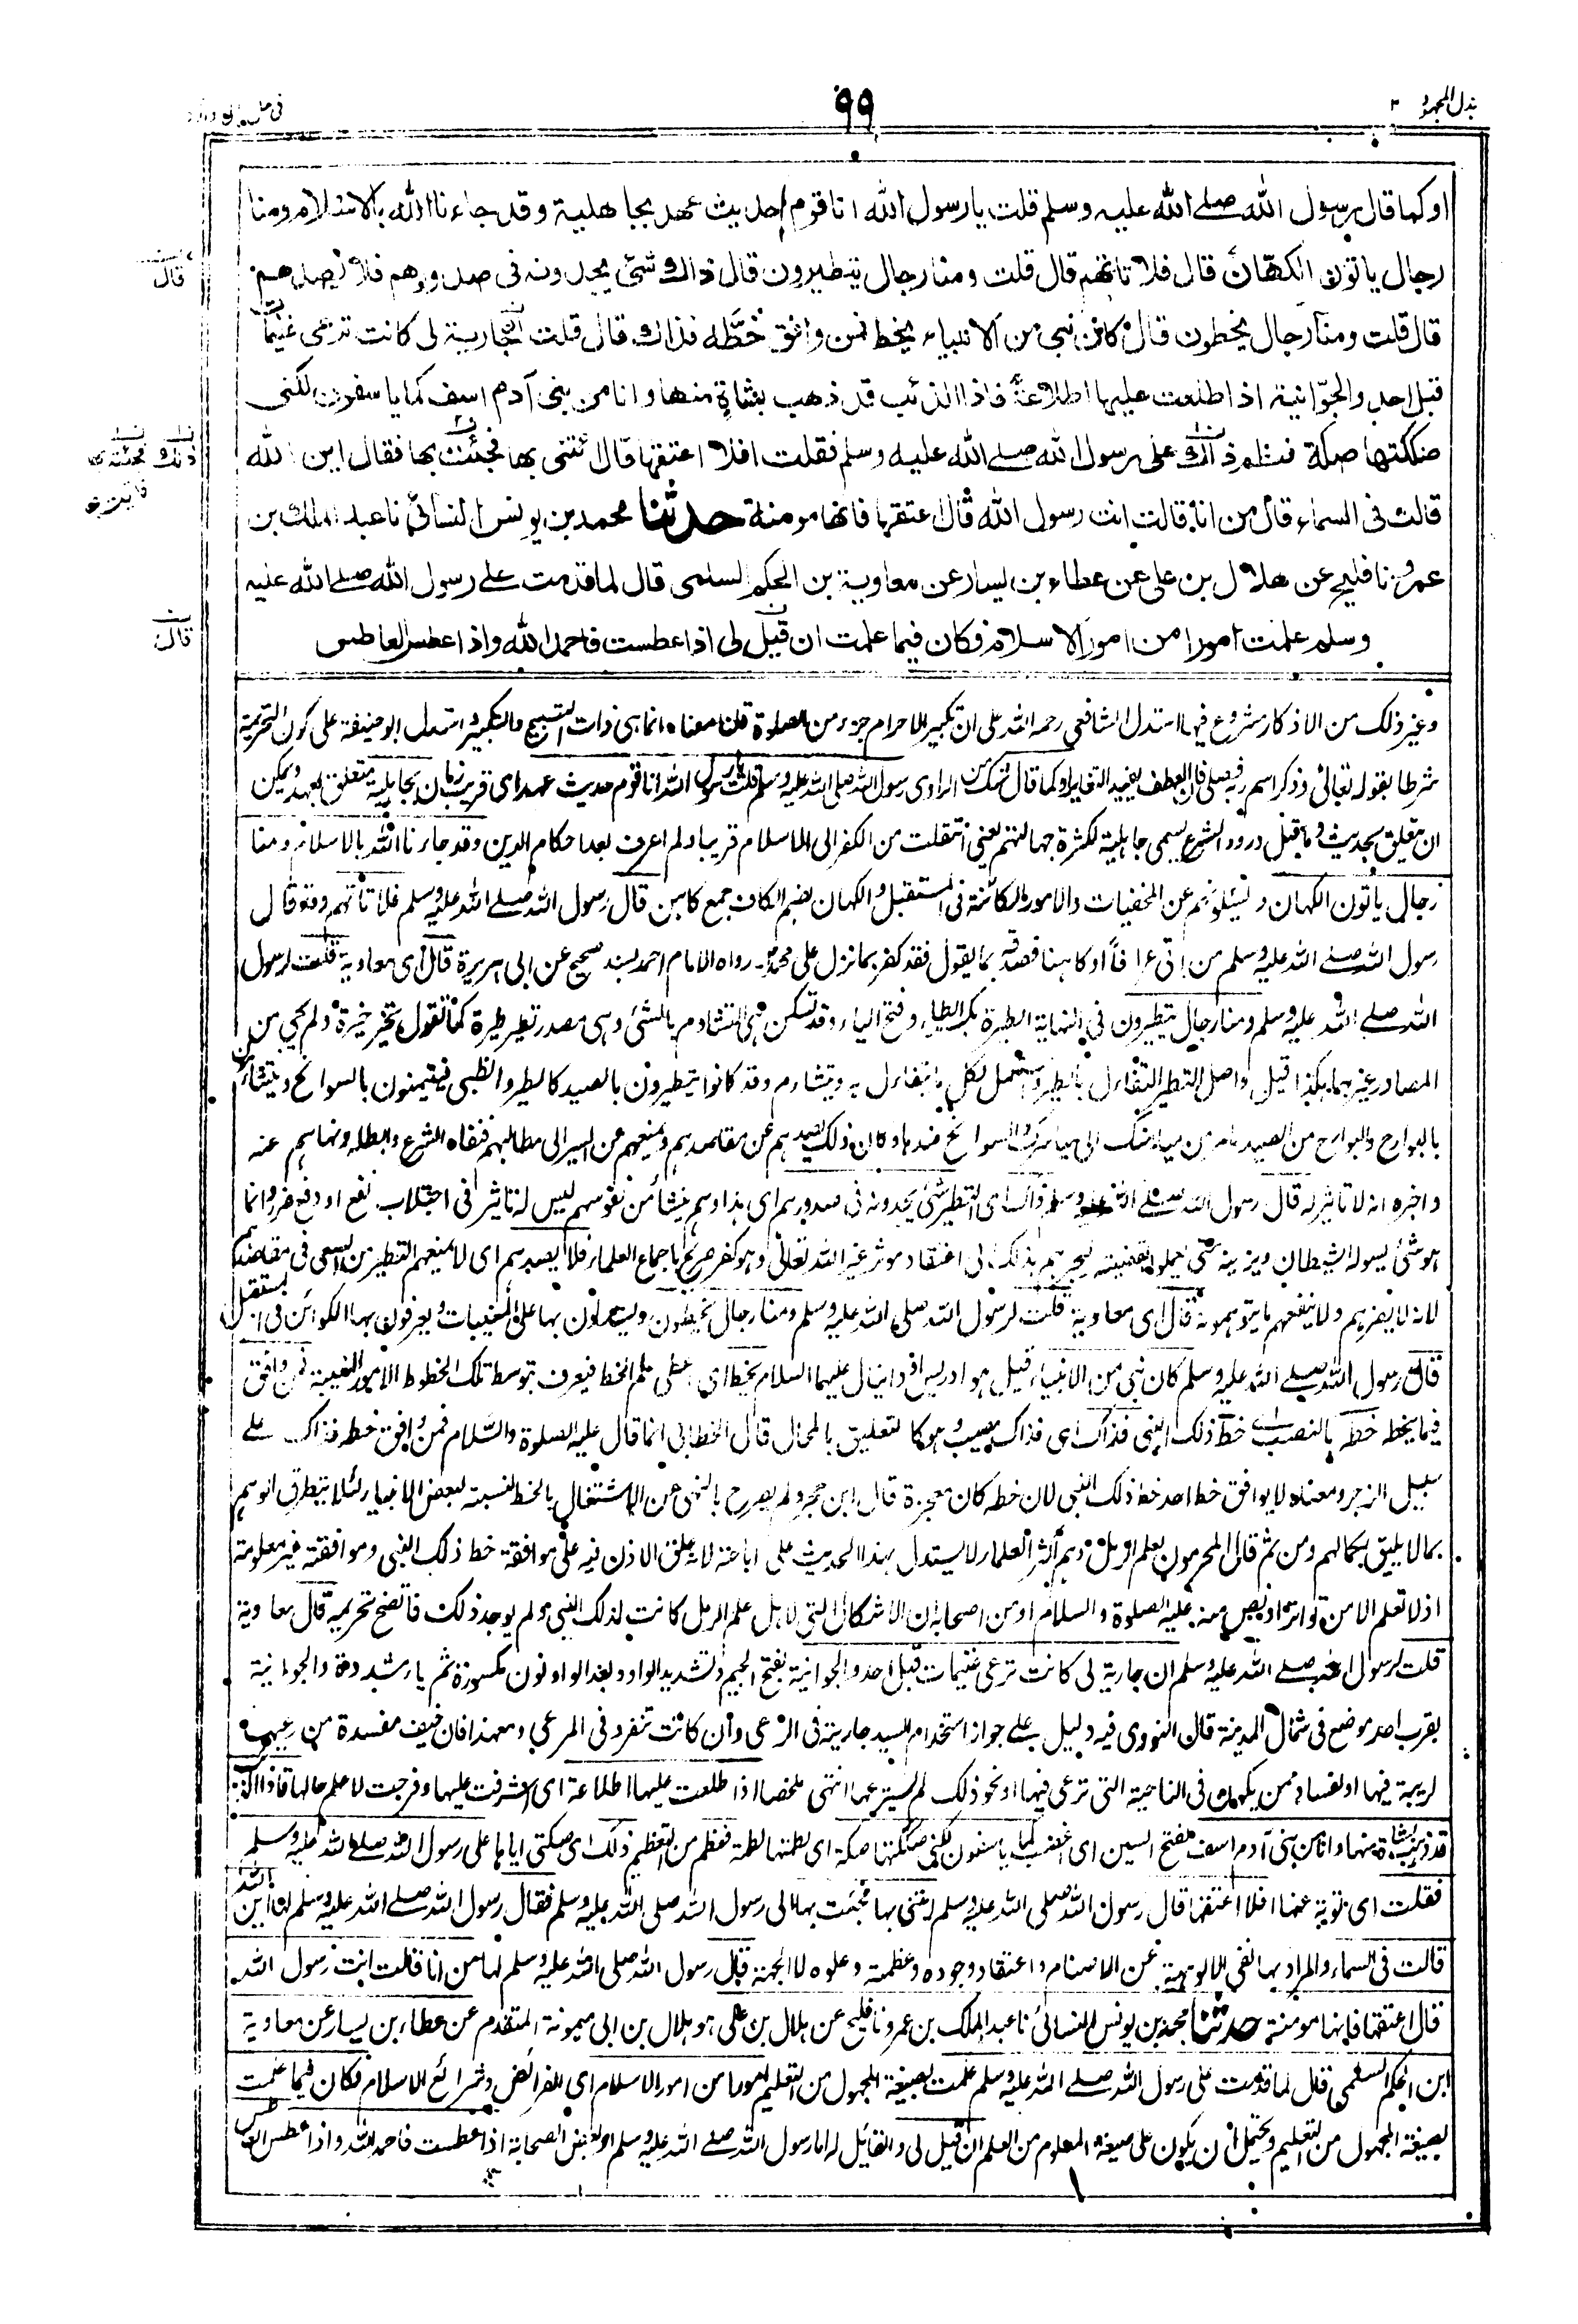 بذل المجهود ٣
٩٩
في حل ابي داود
او كما قال رسول الله صلے الله عليه وسلم قلت يا رسول الله انا قوم حديث عهد بجاهلية وقد جاءنا الله بالاسلام ومنا
رجال ياتون الكهان قال فلا تاتهم قال قلت ومنا رجال يتطيرون قال ذاك شئ يجدونه فى صدورهم فلا يصدهم
قال قلت ومنا رجال يخطون قال كان نبي من الانبياء يخط فمن وافق خطه فذاك قال قلت جارية لى كانت ترعى غنيمات
قبل احد والجوانية اذ اطلعت عليها اطلاعة فاذا الذئب قد ذهب بشاة منها وانا من بنى آدم اسف كما ياسفون لكنى
صككتها صكة فعظم ذاك على رسول الله صلے الله عليه وسلم فقلت افلا اعتقها قال ائتنى بها فجئت بها فقال اين الله
قالت فى السماء قال من انا قالت انت رسول الله قال اعتقها فانها مومنة حدثنا محمد بن يونس النسائى نا عبد الملك بن
عمرو نا فليح عن هلال بن على عن عطاء بن يسار عن معاوية بن الحكم السلمى قال لما قدمت على رسول الله صلے الله عليه
وسلم علمت امورا من امور الاسلام فكان فيما علمت ان قيل لى اذا عطست فاحمد الله واذا عطس العاطس
قال
ذلك فجئته بها
قال
وغير ذلك من الاذكار مشروع فيها استدل الشافعي رحمه الله على ان تكبير الاحرام جزء من الصلوة قلنا معناه انما هى ذات التسبيح والتكبير واستدل ابو حنيفة على كون التحريمة
شرطا بقوله تعالى وذكر اسم ربه فصلى فان العطف يفيد التغاير او كما قال شك من الراوى رسول الله صلى الله عليه وسلم قلت يا رسول الله انا قوم حديث عهد اى قريب زمان بجاهلية متعلق بعهد ويمكن
ان يتعلق بحديث وما قبل ورود الشرع يسمى جاهلية لكثرة جهالتهم يعنى انتقلت من الكفر الى الاسلام قريبا ولم اعرف بعد احكام الدين وقد جاءنا الله بالاسلام ومنا
رجال ياتون الكهان ويسئلونهم عن المخفيات والامور الكائنة فى المستقبل والكهان بضم الكاف جمع كاهن قال رسول الله صلے الله عليه وسلم فلا تأتهم وقد قال
رسول الله صلے الله عليه وسلم من اتى عرافاً او كاهنا فصدقه بما يقول فقد كفر بما نزل على محمد رواه الامام احمد بسند صحيح عن ابى هريرة قال اى معاوية قلت لرسول
الله صلے الله عليه وسلم ومنا رجال يتطيرون فى النهاية الطيرة بكسر الطاء وفتح الياء وقد تسكن هى التشاؤم بالشئ وهى مصدر تطير طيرة كما تقول تخير خيرة ولم يجئ من
المصادر غيرهما هكذا قيل واصل التطير التفاءل بالطير واستعمل لكل ما يتفاءل به ويتشاءم وقد كانوا يتطيرون بالصيد كالطير والظبى فيتيمنون بالسوانح ويتشاءمون
بالبوارح والبوارح من الصيد ما مر من ميامنك الى مياسرك والسوانح ضدها وكان ذلك يصدهم عن مقاصدهم ويمنعهم عن السير الى مطالبهم فنفاه الشرع وابطله ونهاهم عنه
واخبره انه لا تاثير له قال رسول الله صلے الله عليه وسلم ذاك اى التطير شئ يجدونه فى صدورهم اى هذا وهم ينشأ من نفوسهم ليس له تاثير فى اجتلاب نفع او دفع ضر وانما
هو شئ يسوله الشيطان ويزينه حتى يعملوا بقضيته ليجرهم بذلك الى اعتقاد موثر غير الله تعالى وهو كفر صريح باجماع العلماء فلا يصدهم اى لا يمنعهم التطير من السعى فى مقاصدهم
لانه لا يضرهم ولا ينفعهم ما يتوهمونه قال اى معاوية قلت لرسول الله صلى الله عليه وسلم ومنا رجال يخطون ويستدلون بها على المغيبات ويعرفون بها الكوائن فى المستقبل
قال رسول الله صلے الله عليه وسلم كان نبى من الانبياء قيل هو ادريس او دانيال عليهما السلام يخط اى اعطى علم الخط فيعرف بتوسط تلك الخطوط الامور الغيبية فمن وافق
فيما يخطه خطه بالنصب اے خط ذلك النبى فذاك اى فذاك مصيب وهو كالتعليق بالمحال قال الخطابى انما قال عليه الصلوة والسلام فمن وافق خطه فذاك على
سبيل الزجر ومعناه لا يوافق خط احد خط ذلك النبى لان خطه كان معجزة قال ابن حجر ولم يصرح بالنهى عن الاشتغال بالخط لنسبته لبعض الانبياء لئلا يتطرق الوهم
بما لا يليق بكمالهم ومن ثم قال المحرمون لعلم الرمل وهم اكثر العلماء لا يستدل بهذا الحديث على اباحته لانه علق الاذن فيه على موافقة خط ذلك النبى وموافقته غير معلومة
اذ لا تعلم الا من تواتر او نص منه عليه الصلوة والسلام او من اصحابه ان الاشكال التى لاهل علم الرمل كانت لذلك النبى ولم يوجد ذلك فاتضح تحريمه قال معاوية
قلت لرسول الله صلے الله عليه وسلم ان جارية لى كانت ترعى غنيمات قبل احد والجوانية بفتح الجيم وتشديد الواو وبعد الواو نون مكسورة ثم ياء مشددة والجوانية
بقرب احد موضع فى شمال المدينة قال النووى فيه دليل على جواز استخدام السيد جاريته فى الرعى وان كانت تنفرد فى المرعى ومعهذا فان خيف مفسدة من رعيها
لريبة فيها او لفساد ممن يكون فى الناحية التى ترعى فيها او نحو ذلك لم يسترعها انتهى ملخصا اذ اطلعت عليها اطلاعة اى اشرفت عليها وخرجت لاعلم حالها فاذا الذئب
قد ذهب بشاة منها وانا من بنى آدم اسف بفتح السين اى اغضب كما يأسفون لكنى صككتها صكة اى لطمتها لطمة فعظم من التعظيم ذلك اى صكتى اياها على رسول الله صلے الله عليه وسلم
فقلت اى توبة عنها افلا اعتقها قال رسول الله صلى الله عليه وسلم ائتنى بها فجئت بها الى رسول الله صلى الله عليه وسلم فقال رسول الله صلے الله عليه وسلم لها اين الله
قالت فى السماء والمراد بها نفى الالوهية عن الاصنام واعتقاد وجوده وعظمته وعلوه لا الجهة قال رسول الله صلى الله عليه وسلم لها من انا قالت انت رسول الله
قال اعتقها فانها مومنة حدثنا محمد بن يونس النسائى نا عبد الملك بن عمرو نا فليح عن هلال بن على هو هلال بن ابى ميمونة المتقدم عن عطاء بن يسار عن معاوية
ابن الحكم السلمى قال لما قدمت على رسول الله صلے الله عليه وسلم علمت بصيغة المجهول من التعليم امورا من امور الاسلام اى الفرائض وشرائع الاسلام فكان فيما علمت
بصيغة المجهول من التعليم ويحتمل ان يكون على صيغة المعلوم من العلم ان قيل لى والقائل له اما رسول الله صلے الله عليه وسلم او بعض الصحابة اذا عطست فاحمد الله واذا عطس العاطس